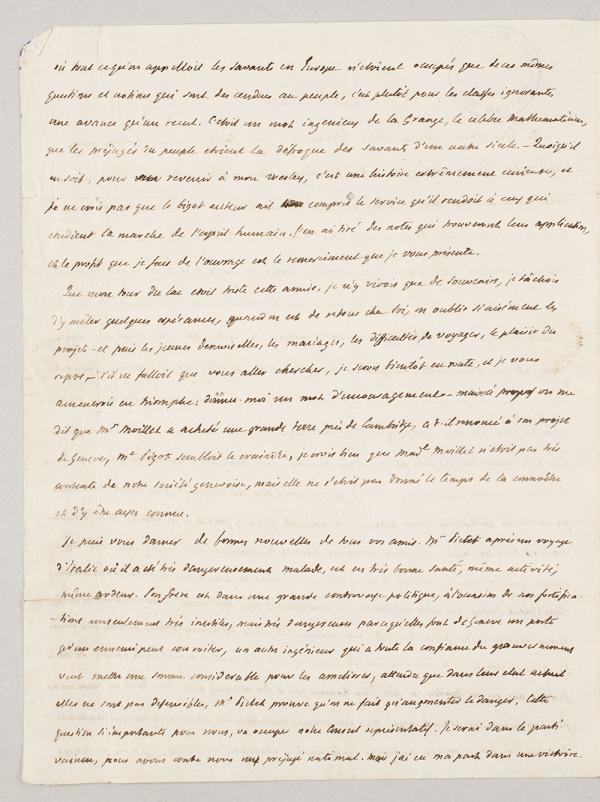 où tout ce qu'on appelloit les savants en Europe n'étoient occupés que de ces mêmes
questions et notions qui sont descendues au peuple, c'est plutôt pour les classes ignorantes
une avance qu'un recul. C'étoit un mot ingenieux de la Grange, le celebre mathematicien,
que les préjugés du peuple etoient la défroque des savants d'une autre siecle. – Quoiqu'il
en soit, pour revenir à mon Wesley, c'est une histoire extrêmement curieuse, et
je ne crois pas que le bigot auteur ait compris le service qu'il rendoit à ceux qui
etudient la marche de l'esprit humain. J'en ai tiré des notes qui trouveront leur application,
et le profit que je fais de l'ouvrage est le remerciment que je vous présente.
Que mon tour du lac etoit triste cette année, je n'y vivois que de souvenir, je tâchois
d'y mêler quelques espérances, quand on est de retour chez soi, on oublie si aisément les
projets – et puis les jeunes demoiselles, les mariages, les difficultés de voyager, le plaisir du
repos, – s'il ne falloit que vous aller chercher, je serois bientôt en route, et je vous
amenerois en triomphe: donnez moi un mot d'encouragement – mais à propos on me
dit que Mr Moillet a acheté une grande terre près de Cambridge, a-t-il renoncé à son projet
de Geneve, Mr Pigot sembloit le craindre, je crois bien que Made Moillet n'étoit pas très
contente de notre société genevoise, mais elle ne s'étoit pas donné le temps de la connoître
et d'y être assez connue.
Je puis vous donner de bonnes nouvelles de tous vos amis. Mr Pictet après un voyage
d'Italie où il a été très dangereusement malade, est en très bonne santé, même activité,
même ardeur. Son frère est dans une grande controverse politique, à l'occasion de nos fortifica-
-tions non seulement très inutiles, mais très dangereuses parce qu'elles font de Geneve un poste
qu'un ennemi peut convoiter, un autre ingénieur qui a toute la confiance du gouvernement
veut mettre une somme considerable pour les améliorer, attendu que dans leur etat actuel
elles ne sont pas defensibles, Mr Pictet prouve qu'on ne fait qu'augmenter le danger. Cette
question si importante pour nous, va occuper notre Conseil représentatif. Je serai dans le parti
vaincu, nous avons contre nous un préjugé national. Mais j'ai eu ma part dans une victoire.